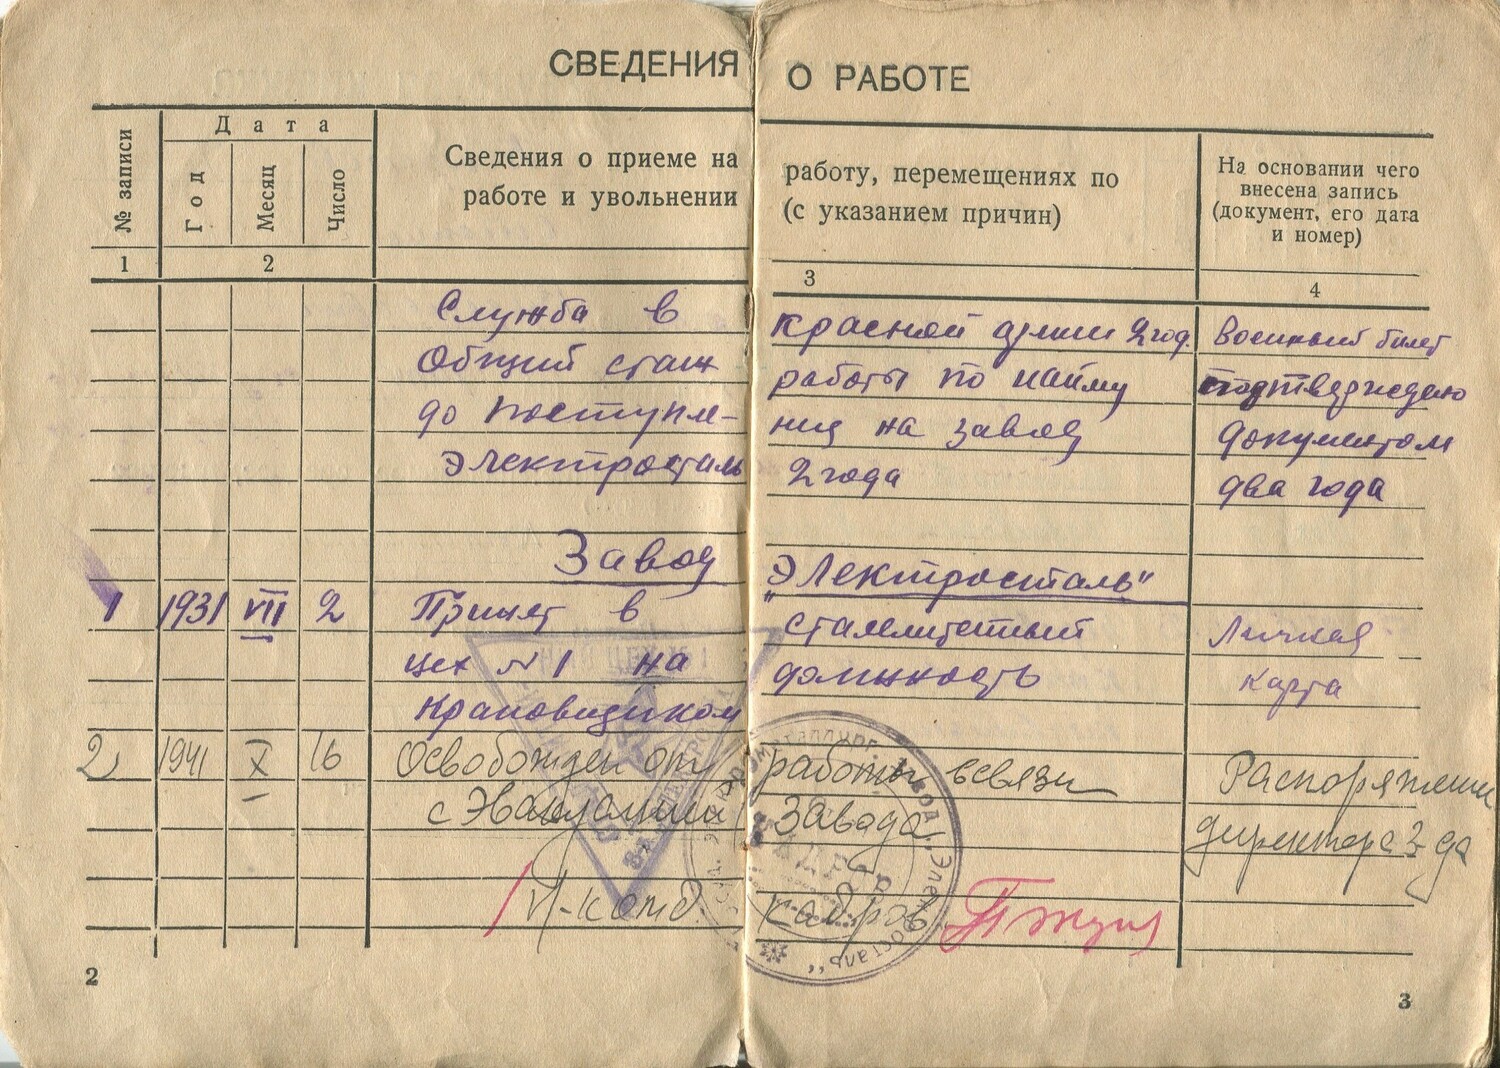 СВЕДЕНИЯ О РАБОТЕ
№ записи
Дата
Год
Месяц
Число
Сведения о приеме на работу, перемещениях по
работе и увольнении (с указанием причин)
На основании чего
внесена запись
(документ, его дата
и номер)
1 2 3 4
Служба в Красной армии 2 год. Военный билет
Общий стаж работы по найму подтвержден
до поступления на завод документом
Электросталь 2 года два года
Завод "Электросталь"
1 1931 VII 2 Принят в сталелитейный Личная
цех № 1 на должность карта
Крановщиком
2 1941 X 16 Освобожден от работы всвязи Распоряжение
с Эвакуацией Завода директора З-да
Н-к отд кадров
2
3